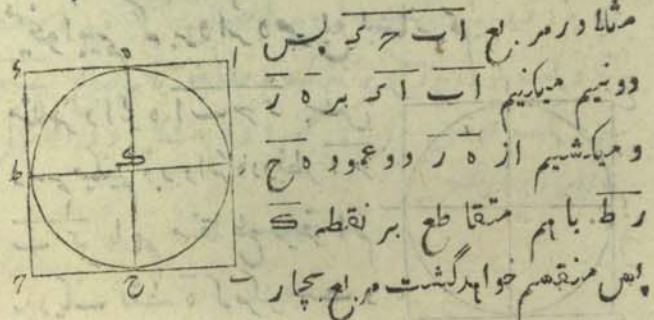 مثلا در مربع اب ح د پس
دونیم میکنیم اب اد بر ه ر
و میکشیم از ه ر دو عمود ه ح
ر ط باهم متقاطع بر نقطه ک
پس منقسم خواهد گشت مربع بچار
د ه ا
ط ک ر
ح ب